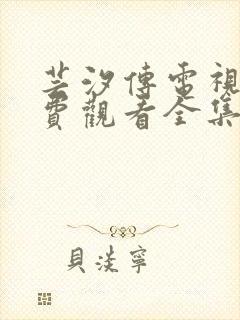 芸汐傳電視
費觀看全集
貝淡寧